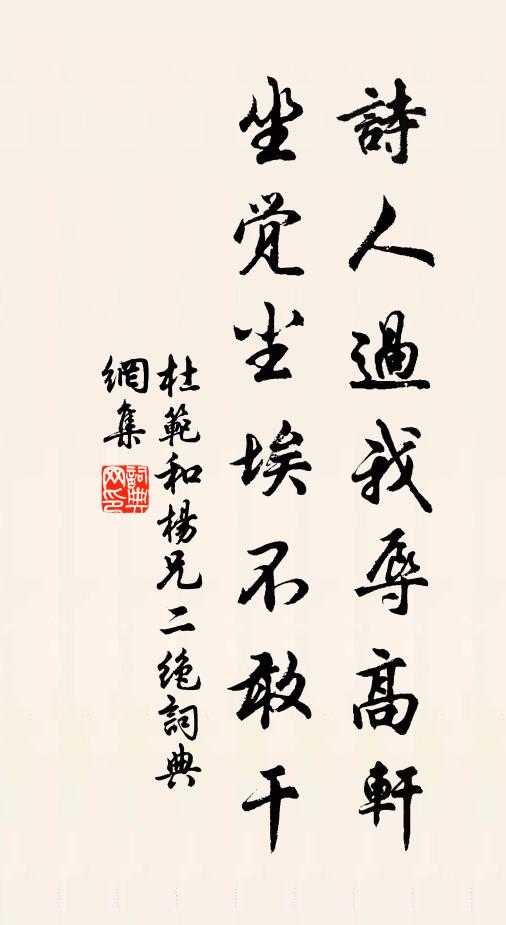 詩人過我辱高軒
坐觉尘埃不敢干
杜範和楊兄二绝詞典
網集
詞典網印